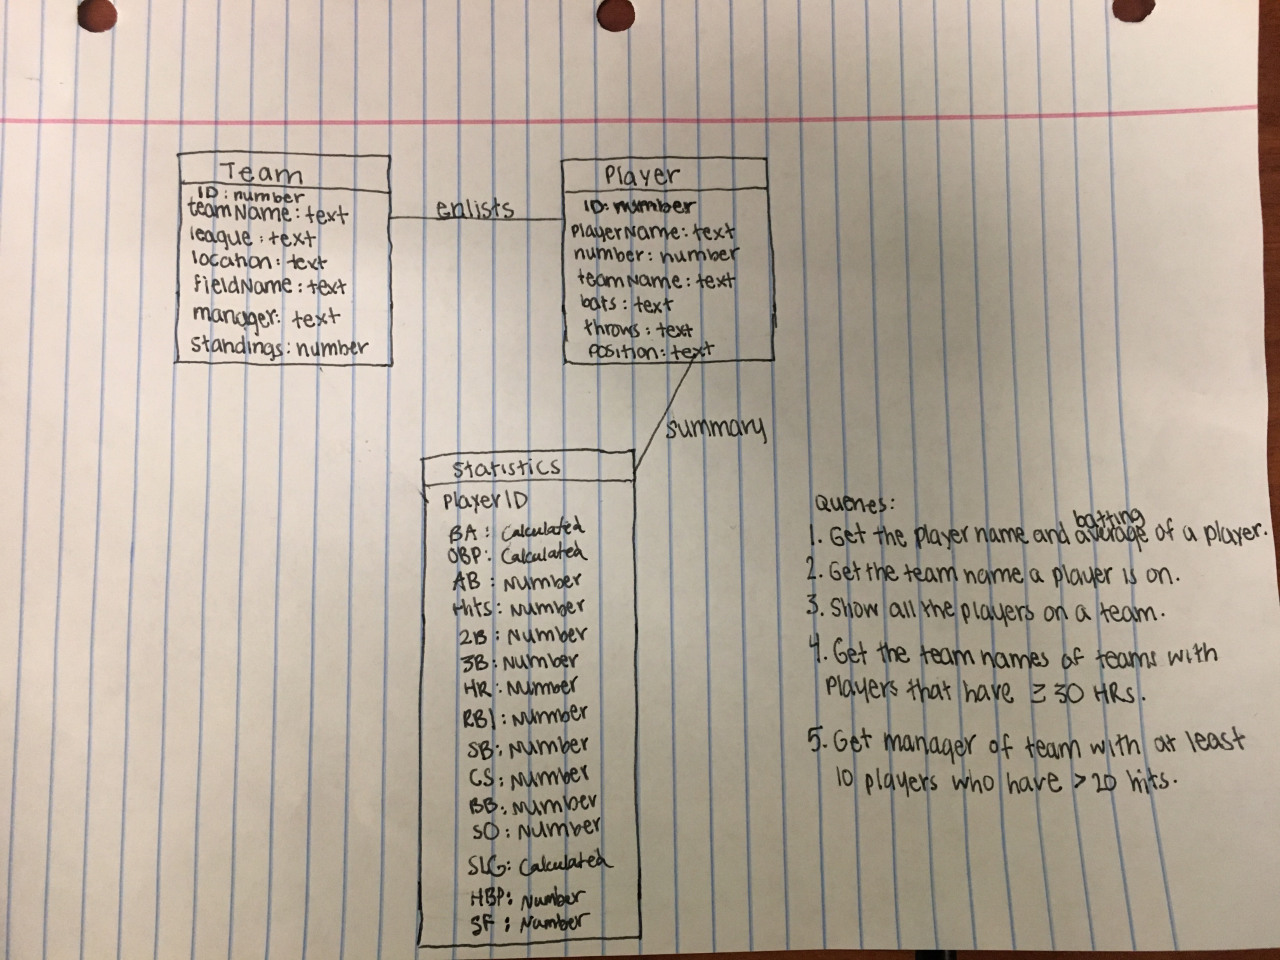 Team
ID: number
teamName: text
league: text
location: text
fieldName: text
manager: text
standings: number
enlists
Player
ID: number
playerName: text
number: number
teamName: text
bats: text
throws: text
position: text
summary
Statistics
PlayerID
BA: Calculated
OBP: Calculated
AB: Number
Hits: Number
2B: Number
3B: Number
HR: Number
RBI: Number
SB: Number
CS: Number
BB: Number
SO: Number
SLG: Calculated
HBP: Number
SF: Number
Queries:
1. Get the player name and batting average of a player.
2. Get the team name a player is on.
3. Show all the players on a team.
4. Get the team names of teams with
players that have ≥ 30 HRs.
5. Get manager of team with at least
10 players who have > 20 hits.